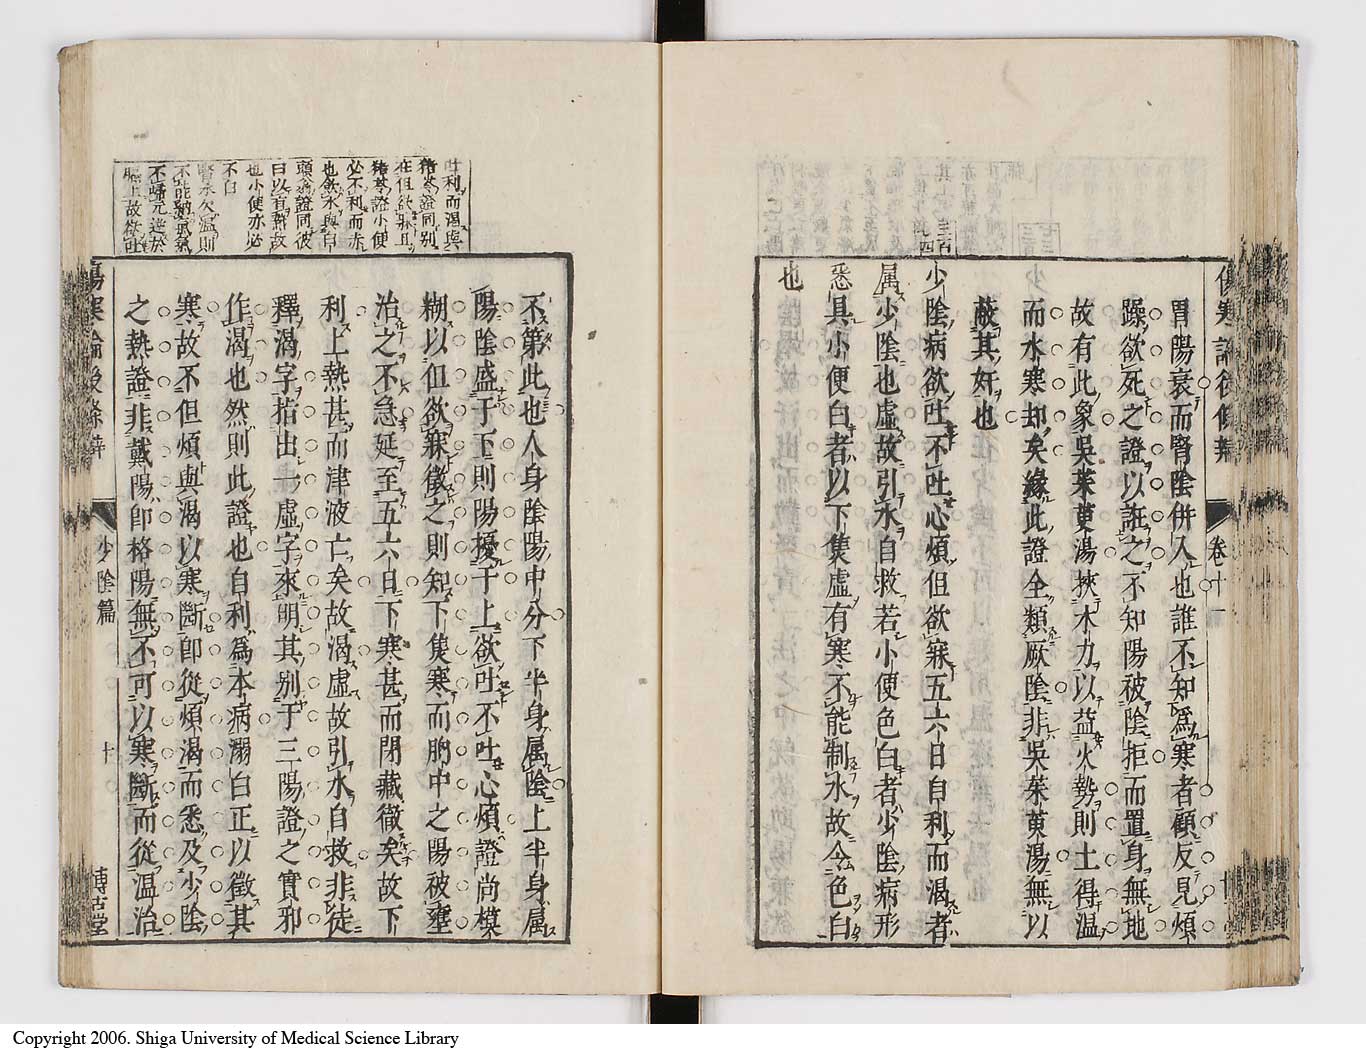 胃陽衰而腎陰併入也誰不知爲寒者顧反見煩
躁欲死之證以誑之不知陽被陰拒而置身無地
故有此象吳茱萸湯挾木力以益火勢則土得溫
而水寒却矣緣此證全類厥陰非吳茱萸湯無以
蔽其奸也
少陰病欲吐不吐心煩但欲寐五六日自利而渴者
属少陰也虛故引水自救若小便色白者少陰病形
悉具小便白者以下焦虛有寒不能制水故令色白
也
卷十一
吐利而渴與
猪苓證同別
在但欲寐且
猪苓證小便
必不利而亦
也飲水與白
頭翁證同彼
曰以有熱故
也小便亦必
不白
腎氣欠溫則
不能納氣氣
不歸元逆於
膈上故欲吐
不第此也人身陰陽中分下半身属陰上半身属
陽陰盛于下則陽擾于上欲吐不吐心煩證尚模
糊以但欲寐徵之則知下焦寒而胸中之陽被壅
治之不急延至五六日下寒甚而閉藏徹矣故下
利上熱甚而津液亡矣故渴虛故引水自救非徒
釋渴字指出一虛字來明其別于三陽證之實邪
作渴也然則此證也自利爲本病溺白正以徵其
寒故不但煩與渴以寒斷即從煩渴而悉及少陰
之熱證非戴陽即格陽無不可以寒斷而從溫治
傷寒論後條辨
少陰篇
十
博古堂
Copyright 2006. Shiga University of Medical Science Library